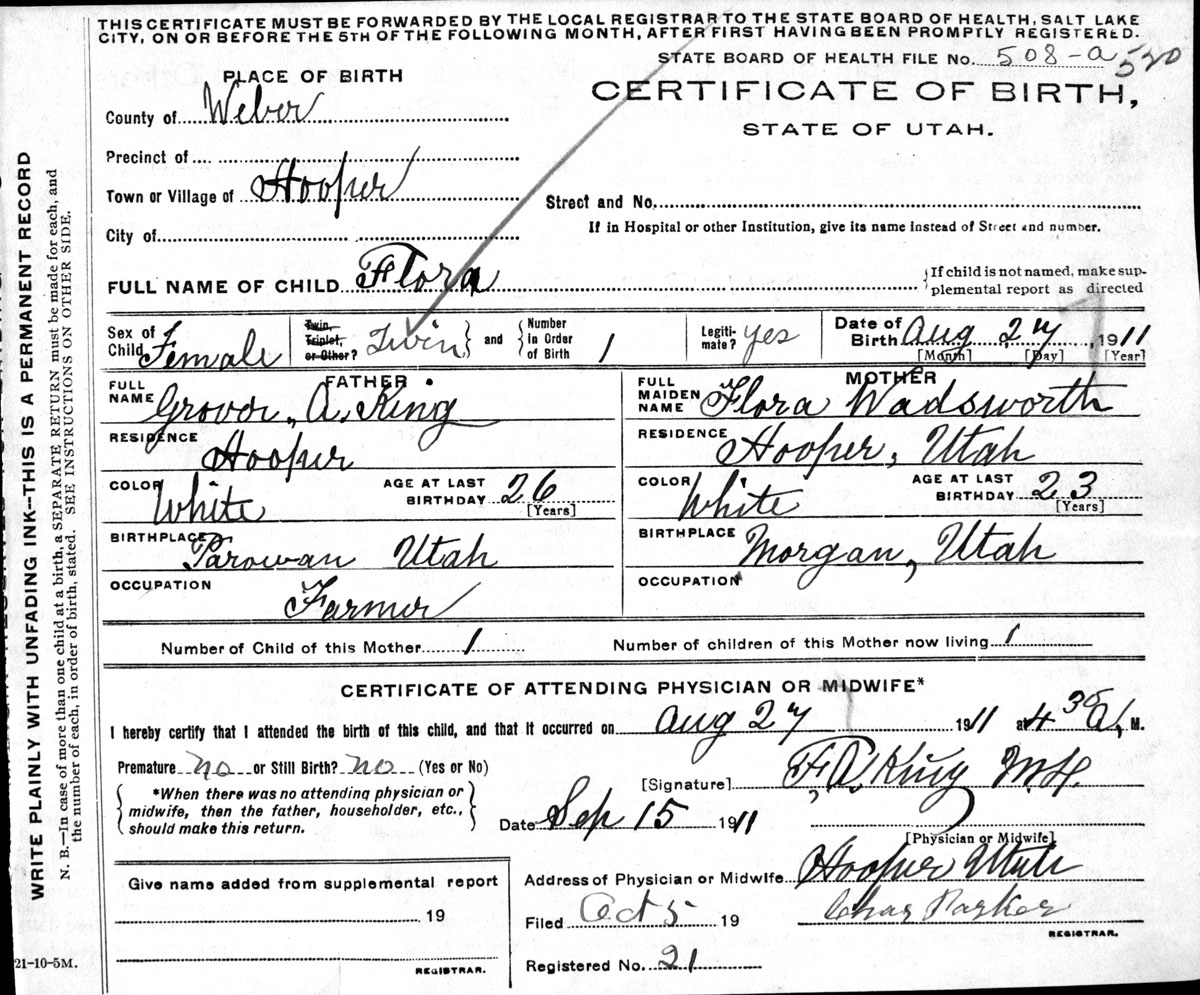 THIS CERTIFICATE MUST BE FORWARDED BY THE LOCAL REGISTRAR TO THE STATE BOARD OF HEALTH, SALT LAKE
CITY, ON OR BEFORE THE 5TH OF THE FOLLOWING MONTH, AFTER FIRST HAVING BEEN PROMPTLY REGISTERED.
STATE BOARD OF HEALTH FILE No. 508-a 520
PLACE OF BIRTH
CERTIFICATE OF BIRTH,
STATE OF UTAH.
County of Weber
Precinct of
Town or Village of Hooper
Street and No.
City of
If in Hospital or other Institution, give its name instead of Street and number.
FULL NAME OF CHILD Flora
If child is not named, make sup-
plemental report as directed
Sex of Child Female
Twin, Triplet, or Other? Twin and Number in Order of Birth 1
Legiti-mate? yes
Date of Birth Aug 27, 1911
[Month] [Day] [Year]
FATHER
FULL NAME Grover, A. King
RESIDENCE Hooper
COLOR White AGE AT LAST BIRTHDAY 26
[Years]
BIRTHPLACE Parowan Utah
OCCUPATION Farmer
MOTHER
FULL MAIDEN NAME Flora Wadsworth
RESIDENCE Hooper, Utah
COLOR White AGE AT LAST BIRTHDAY 23
[Years]
BIRTHPLACE Morgan, Utah
OCCUPATION
Number of Child of this Mother 1 Number of children of this Mother now living 1
CERTIFICATE OF ATTENDING PHYSICIAN OR MIDWIFE*
I hereby certify that I attended the birth of this child, and that it occurred on Aug 27 1911 at 4 30 A, M.
Premature no or Still Birth? no (Yes or No)
[Signature] F, A, King
*When there was no attending physician or
midwife, then the father, householder, etc.,
should make this return.
Date Sep 15 1911
[Physician or Midwife]
Address of Physician or Midwife Hooper Utah
Give name added from supplemental report
19
REGISTRAR.
Filed Oct 5 19 Chas Parker
REGISTRAR.
Registered No. 21
21-10-5M.
WRITE PLAINLY WITH UNFADING INK--THIS IS A PERMANENT RECORD
N. B.—In case of more than one child at a birth, a SEPARATE RETURN must be made for each, and
the number of each, in order of birth, stated. SEE INSTRUCTIONS ON OTHER SIDE.